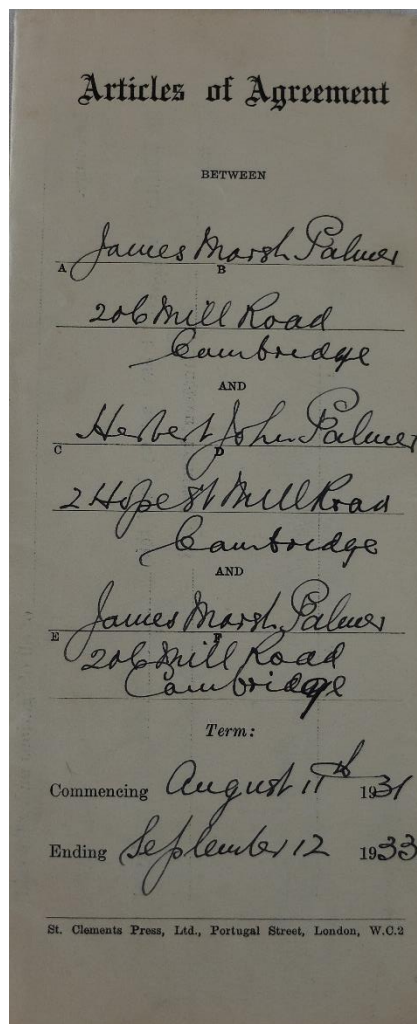 Articles of Agreement
BETWEEN
James Marsh Palmer
A B
206 Mill Road
Cambridge
AND
Herbert John Palmer
C D
2 Hope St Mill Road
Cambridge
AND
James Marsh Palmer
E F
206 Mill Road
Cambridge
Term:
Commencing August 11th 1931
Ending September 12 1933
St. Clements Press, Ltd., Portugal Street, London, W.C.2